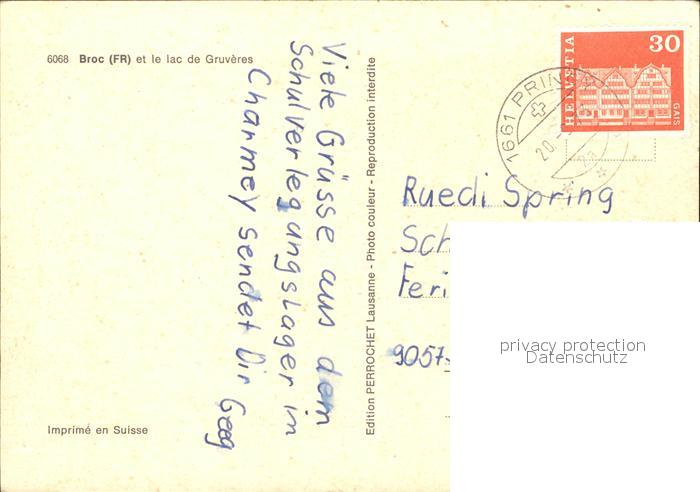 6068 Broc (FR) et le lac de Gruyères
Viele Grüsse aus dem
Schulverlegungslager in
Charmey sendet Dir Geog
Imprimé en Suisse
Edition PERROCHET Lausanne - Photo couleur - Reproduction interdite
HELVETIA
30
GAIS
1661 PRIN
20.
Ruedi Spring
Sch
Feri
9057-
privacy protection
Datenschutz